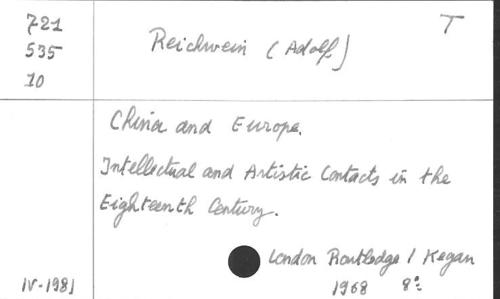 721
535
10
Reichwein (Adolf)
T
China and Europe.
Intellectual and Artistic Contacts in the
Eighteenth Century.
London Routledge / Kegan
1968 8º
IV-1981